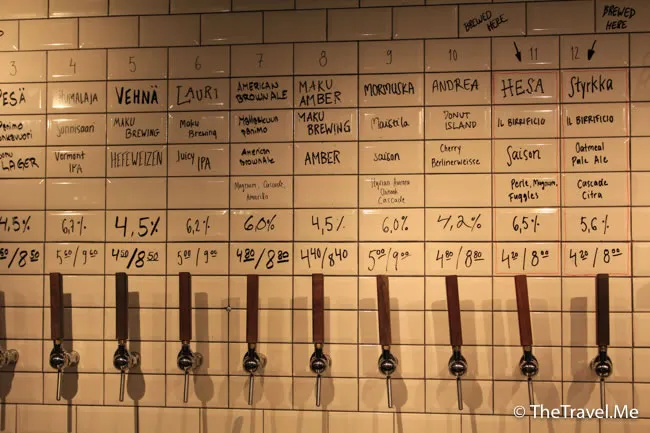 BREWED HERE
BREWED HERE
3 4 5 6 7 8 9 10 11 12
VEHNÄ
MAKU BREWING
HEFEWEIZEN
4,5%
450/850
LAURI
Maku Brewing
Juicy IPA
6,2%
500/900
AMERICAN BROWN ALE
American Brown Ale
Magnum, Cascade, Amarillo
6,0%
480/880
MAKU AMBER
MAKU BREWING
AMBER
4,5%
440/840
MORMUSKA
saison
Cascade
6,0%
500/900
ANDREA
DONUT ISLAND
Cherry Berlinerweisse
4,2%
480/880
HESA
IL BIRRIFICIO
Saison
Perle, Magnum, Fuggles
6,5%
420/800
Styrkka
IL BIRRIFICIO
Oatmeal Pale Ale
Cascade Citra
5,6%
420/800
Vermont IPA
6,7%
LAGER
4,5%
© TheTravel.Me